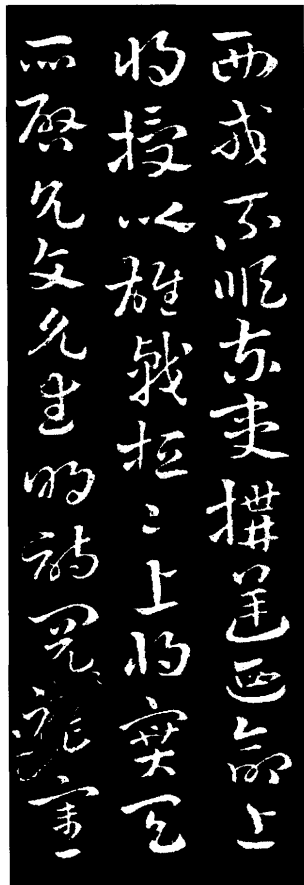 西戎不順東夷搆逆迺命上
將授以雄戟桓〻上將實天
所啓允文允武明詩閱禮憲